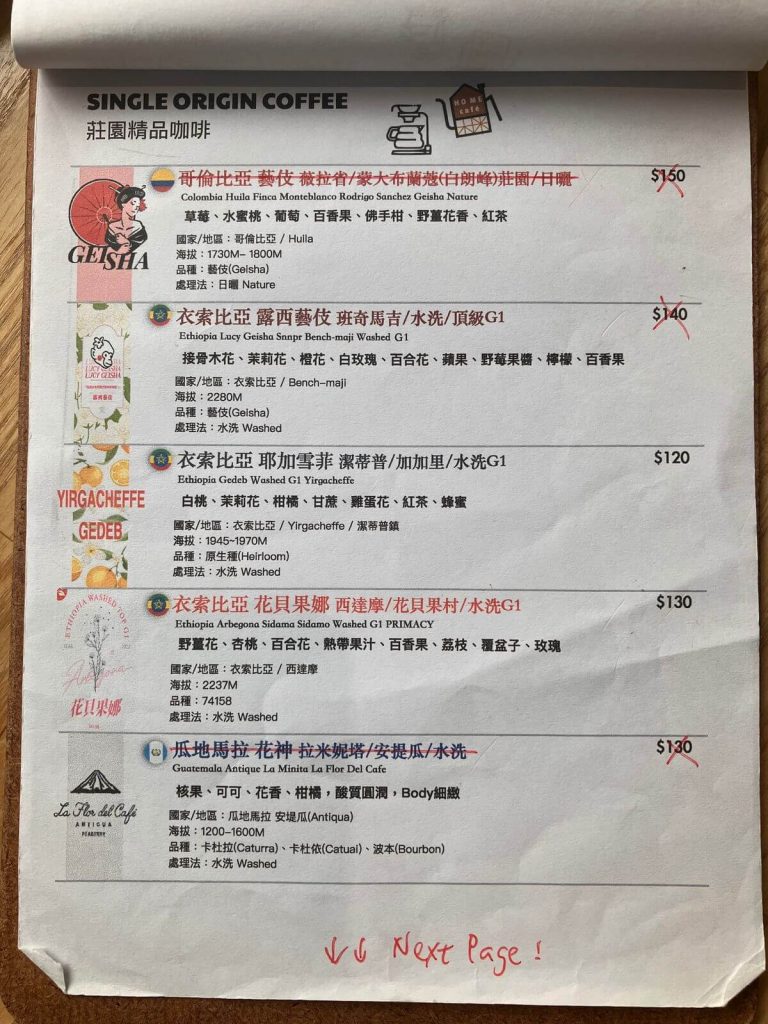 SINGLE ORIGIN COFFEE
莊園精品咖啡
HOME
café
GEISHA
哥倫比亞 藝伎 薇拉省/蒙大布蘭蔻(白朗峰)莊園/日曬 $150
Colombia Huila Finca Monteblanco Rodrigo Sanchez Geisha Nature
草莓、水蜜桃、葡萄、百香果、佛手柑、野薑花香、紅茶
國家/地區：哥倫比亞 / Huila
海拔：1730M- 1800M
品種：藝伎(Geisha)
處理法：日曬 Nature
LUCY GEISHA
LUCY GEISHA
衣索比亞 露西藝伎 班奇馬吉/水洗/頂級G1 $140
Ethiopia Lucy Geisha Snnpr Bench-maji Washed G1
接骨木花、茉莉花、橙花、白玫瑰、百合花、蘋果、野莓果醬、檸檬、百香果
國家/地區：衣索比亞 / Bench-maji
海拔：2280M
品種：藝伎(Geisha)
處理法：水洗 Washed
YIRGACHEFFE
GEDEB
衣索比亞 耶加雪菲 潔蒂普/加加里/水洗G1 $120
Ethiopia Gedeb Washed G1 Yirgacheffe
白桃、茉莉花、柑橘、甘蔗、雞蛋花、紅茶、蜂蜜
國家/地區：衣索比亞 / Yirgacheffe / 潔蒂普鎮
海拔：1945~1970M
品種：原生種(Heirloom)
處理法：水洗 Washed
ETHIOPIA WASHED TOP G1
花貝果娜
衣索比亞 花貝果娜 西達摩/花貝果村/水洗G1 $130
Ethiopia Arbegona Sidama Sidamo Washed G1 PRIMACY
野薑花、杏桃、百合花、熱帶果汁、百香果、荔枝、覆盆子、玫瑰
國家/地區：衣索比亞 / 西達摩
海拔：2237M
品種：74158
處理法：水洗 Washed
La Flor del Café
ANTIGUA
PEABERRY
瓜地馬拉 花神 拉米妮塔/安提瓜/水洗 $130
Guatemala Antique La Minita La Flor Del Cafe
核果、可可、花香、柑橘，酸質圓潤，Body細緻
國家/地區：瓜地馬拉 安堤瓜(Antiqua)
海拔：1200-1600M
品種：卡杜拉(Caturra)、卡杜依(Catual)、波本(Bourbon)
處理法：水洗 Washed
↓↓ Next Page !